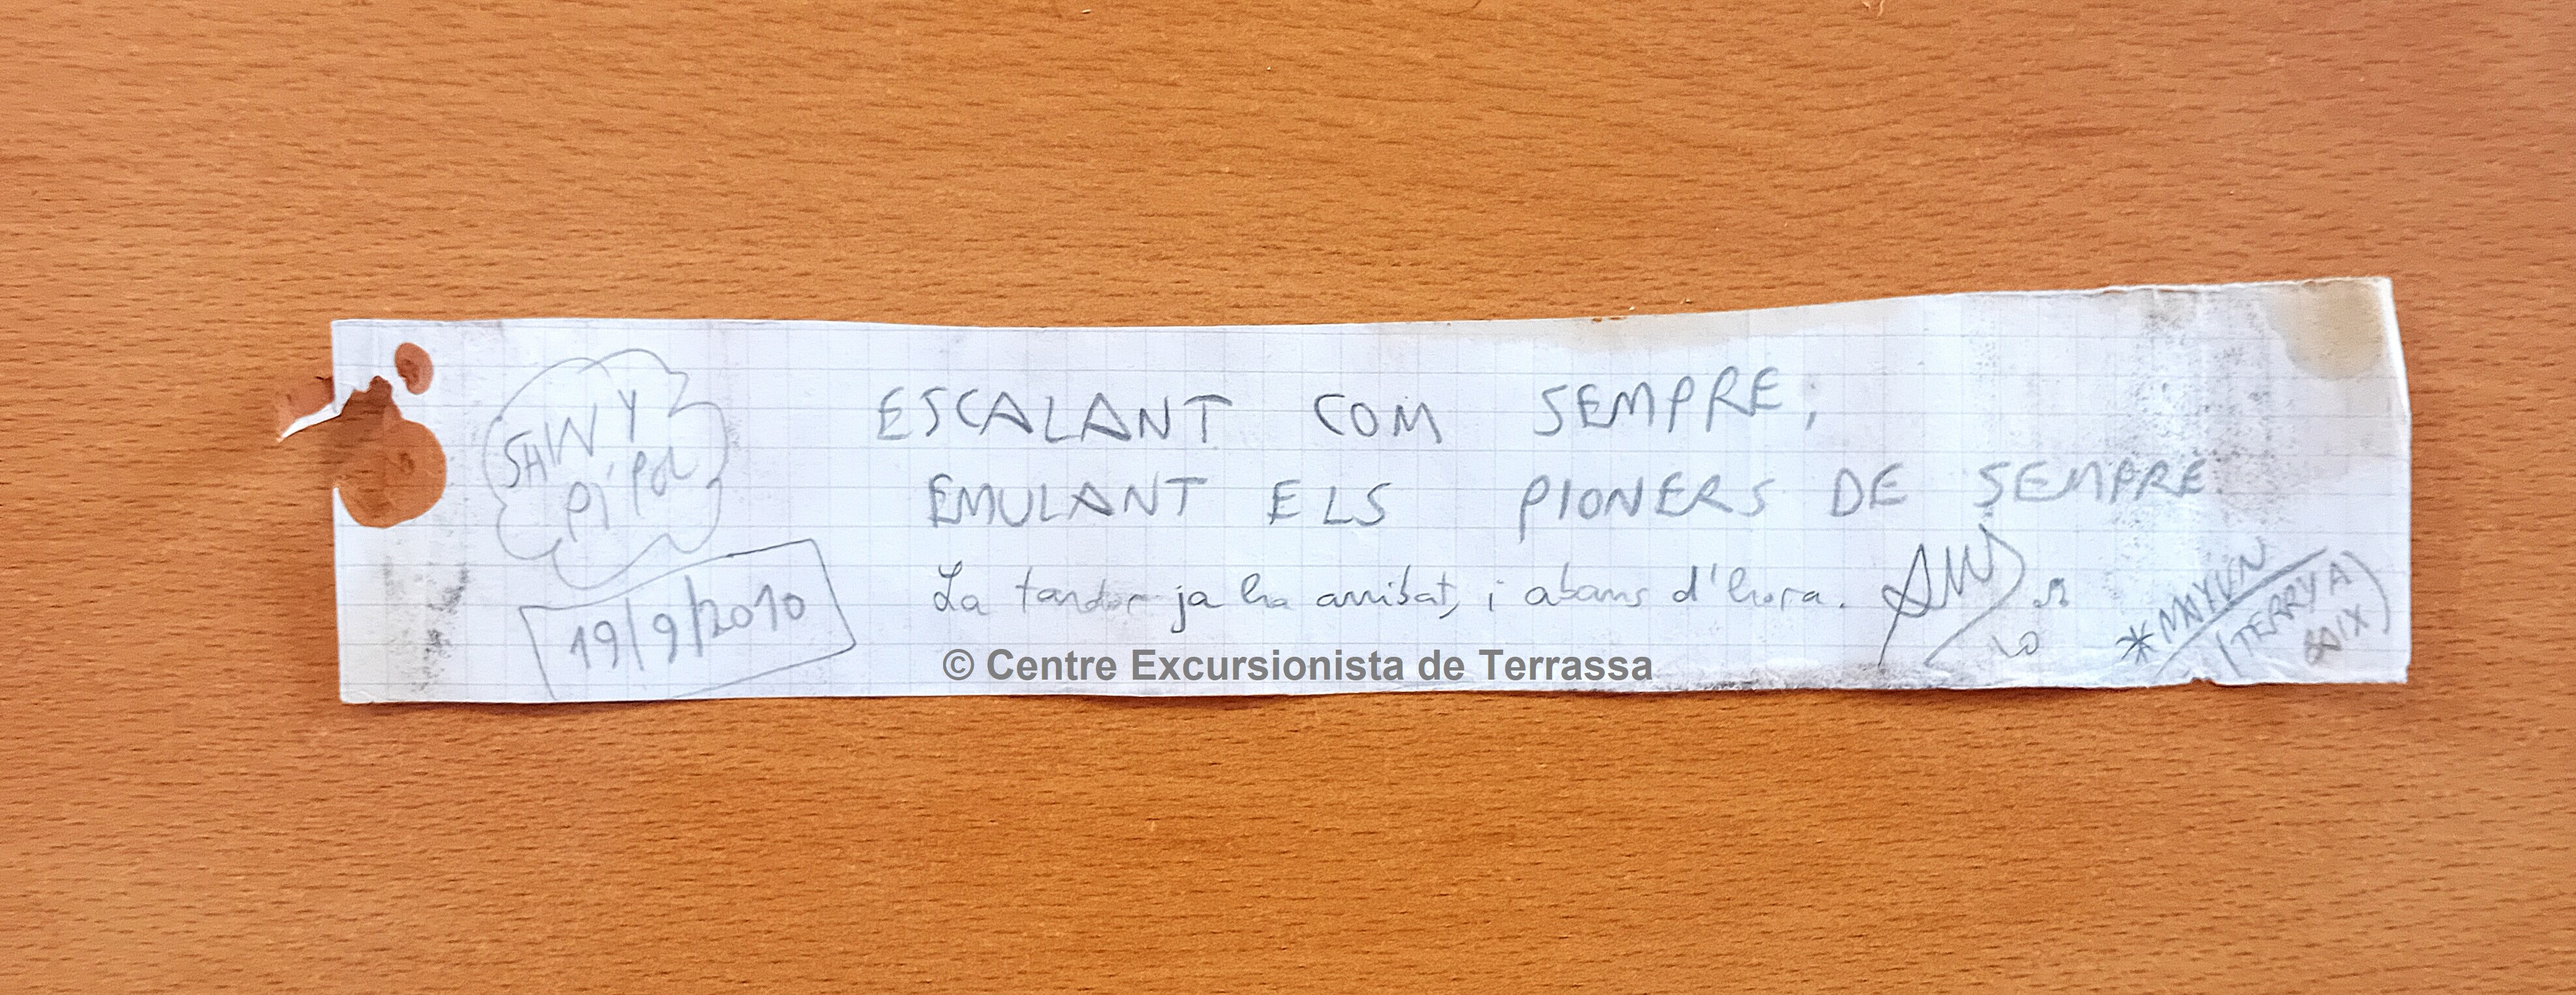 SHINY
PI'POL
19/9/2010
ESCALANT COM SEMPRE,
EMULANT ELS PIONERS DE SEMPRE
La tardor ja ha arribat, i abans d'hora.
* MAYUN
(TERRY A
BAIX)
© Centre Excursionista de Terrassa